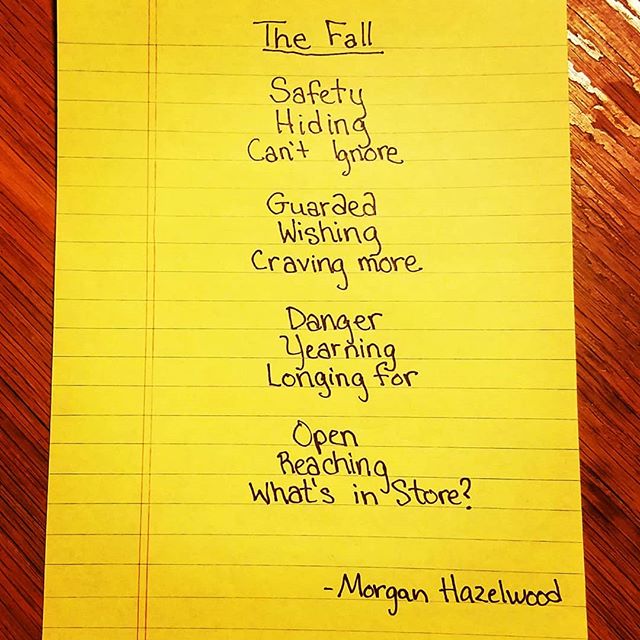 The Fall
Safety
Hiding
Can't Ignore
Guarded
Wishing
Craving more
Danger
Yearning
Longing for
Open
Reaching
What's in Store?
-Morgan Hazelwood